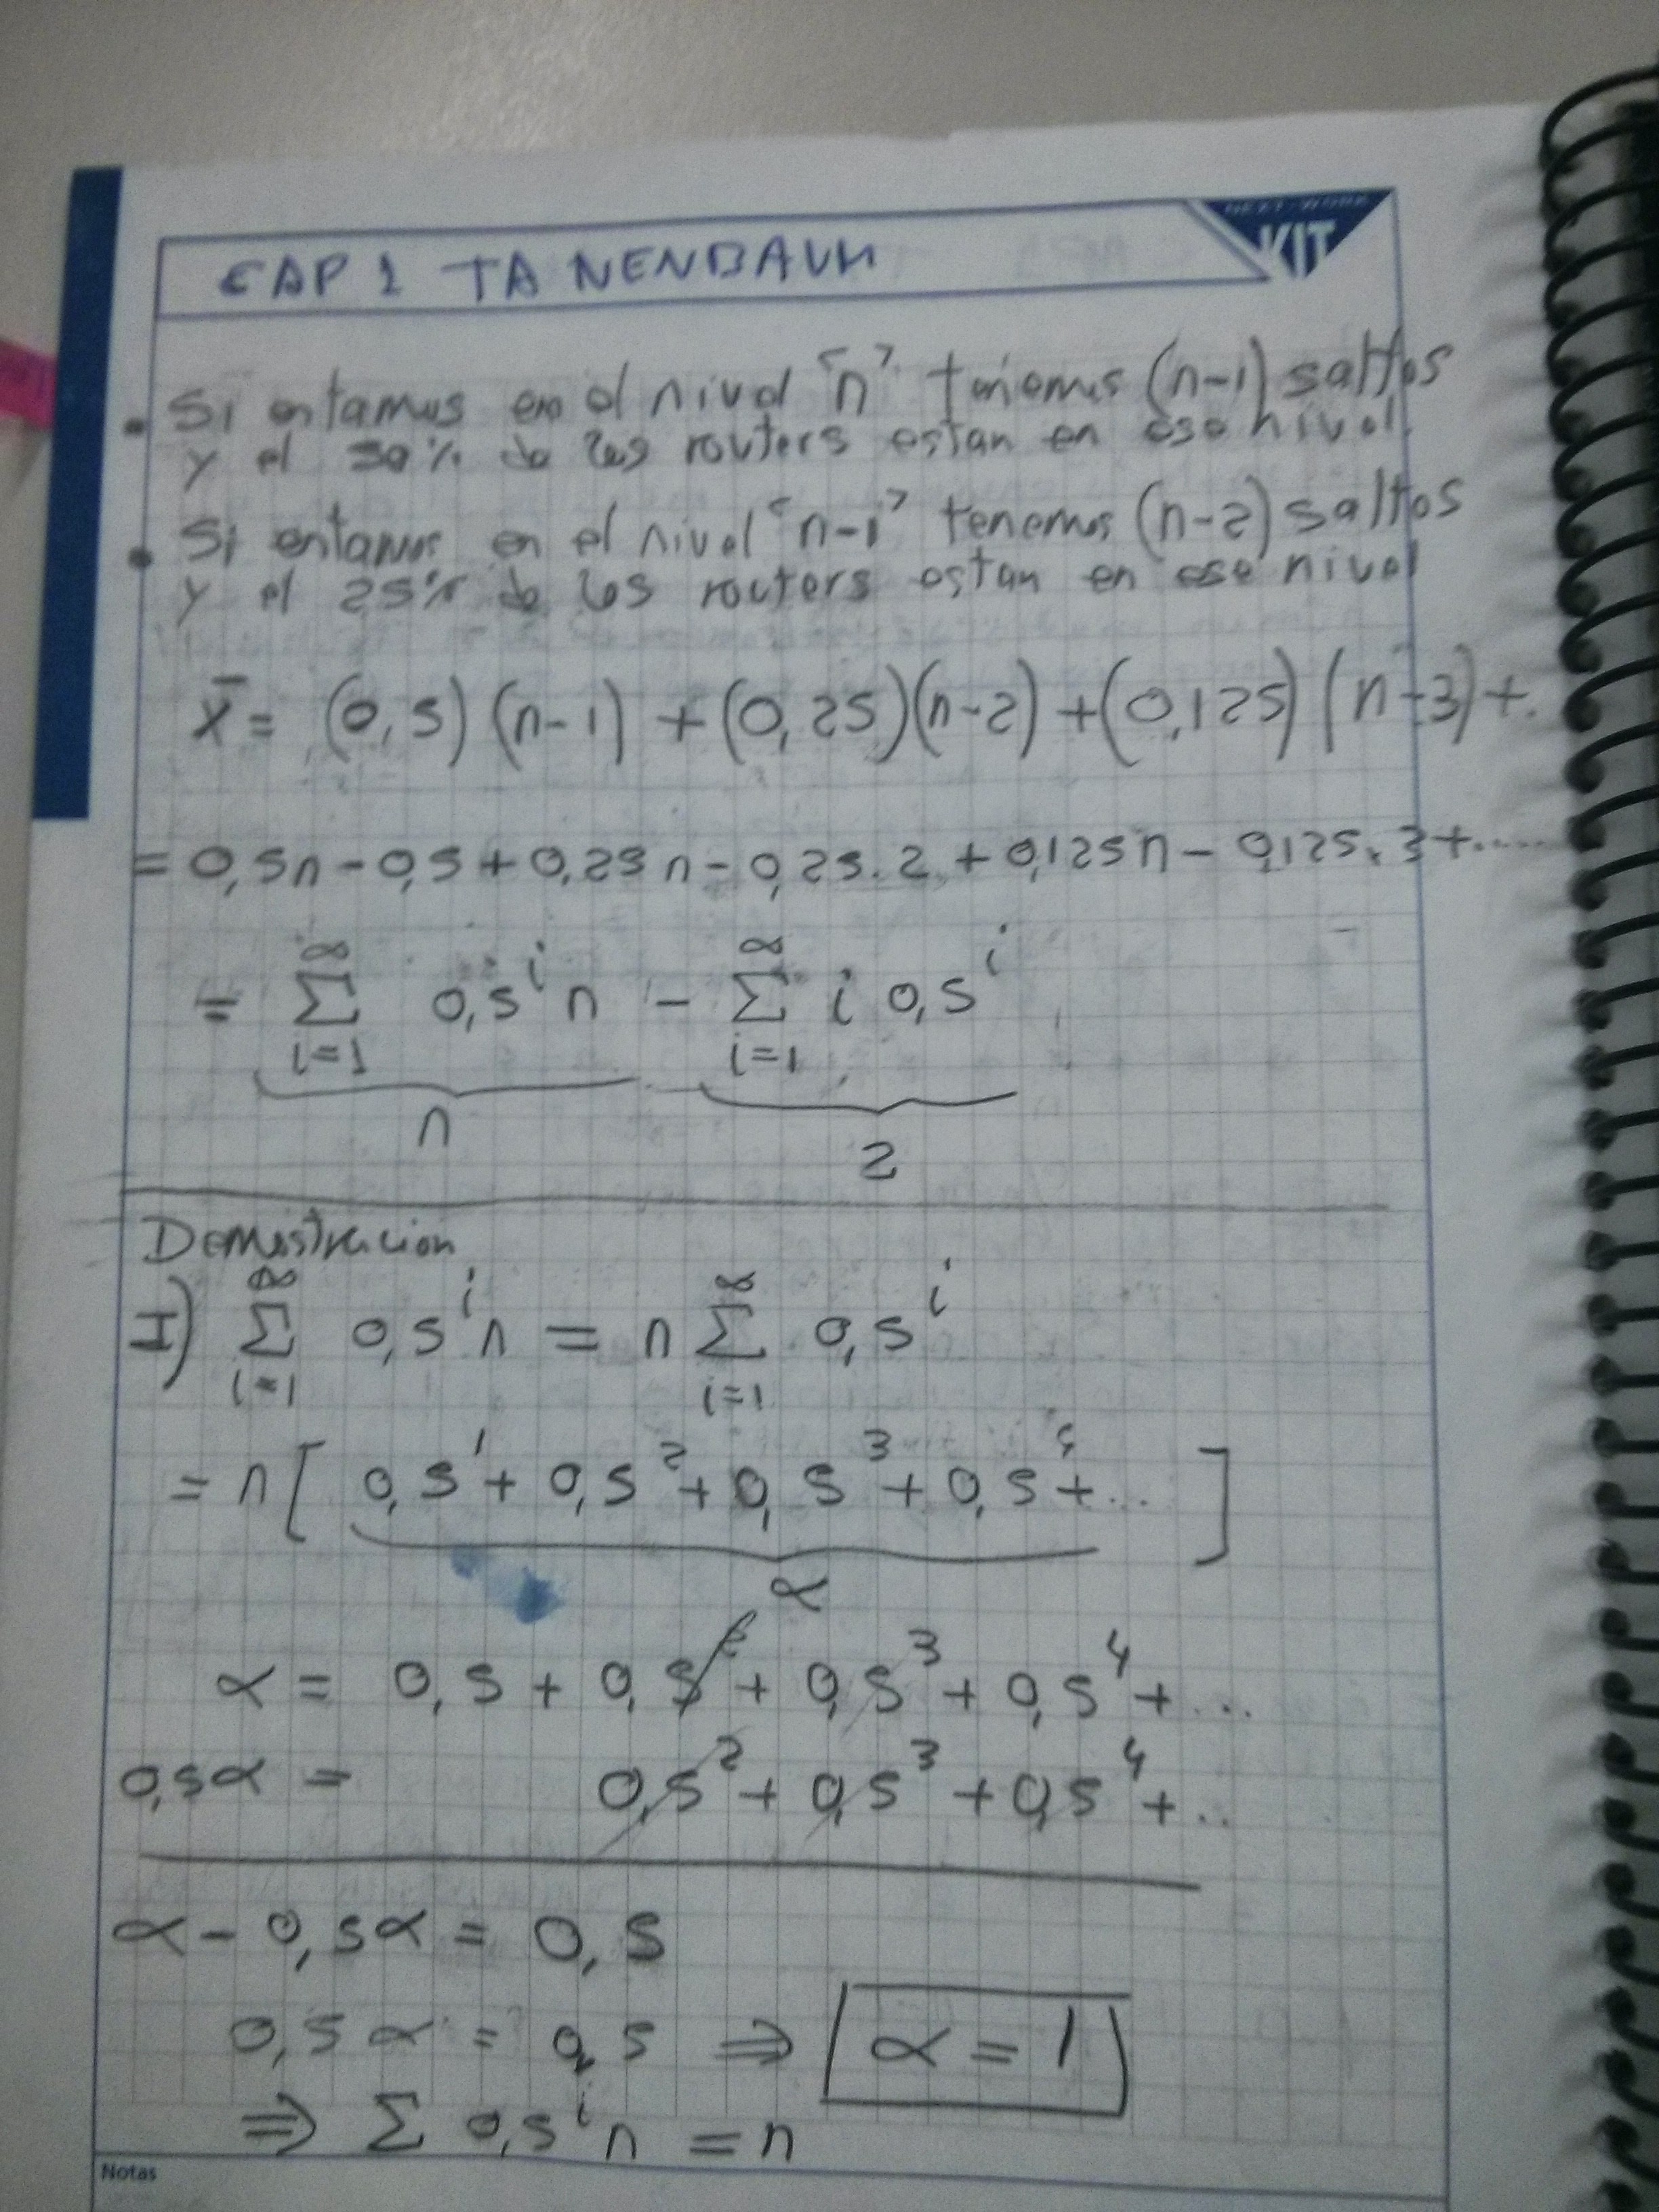 NEXT-WORK
KIT
CAP 1 TANENBAUM
• Si estamos en el nivel "n" tenemos (n-1) saltos
y el 50% de los routers estan en ese nivel.
• Si estamos en el nivel "n-1" tenemos (n-2) saltos
y el 25% de los routers estan en ese nivel
x̄ = (0,5)(n-1) + (0,25)(n-2) + (0,125)(n-3) + .
= 0,5n - 0,5 + 0,25n - 0,25.2 + 0,125n - 0,125.3 + .....
= ∑_{i=1}^{∞} 0,5^i n - ∑_{i=1}^{∞} i 0,5^i
n 2
Demostracion
I) ∑_{i=1}^{∞} 0,5^i n = n ∑_{i=1}^{∞} 0,5^i
= n [ 0,5^1 + 0,5^2 + 0,5^3 + 0,5^4 + ... ]
α
α = 0,5 + 0,5^2 + 0,5^3 + 0,5^4 + ...
0,5α = 0,5^2 + 0,5^3 + 0,5^4 + ..
α - 0,5α = 0,5
0,5α = 0,5 ⇒ α = 1
⇒ ∑ 0,5^i n = n
Notas